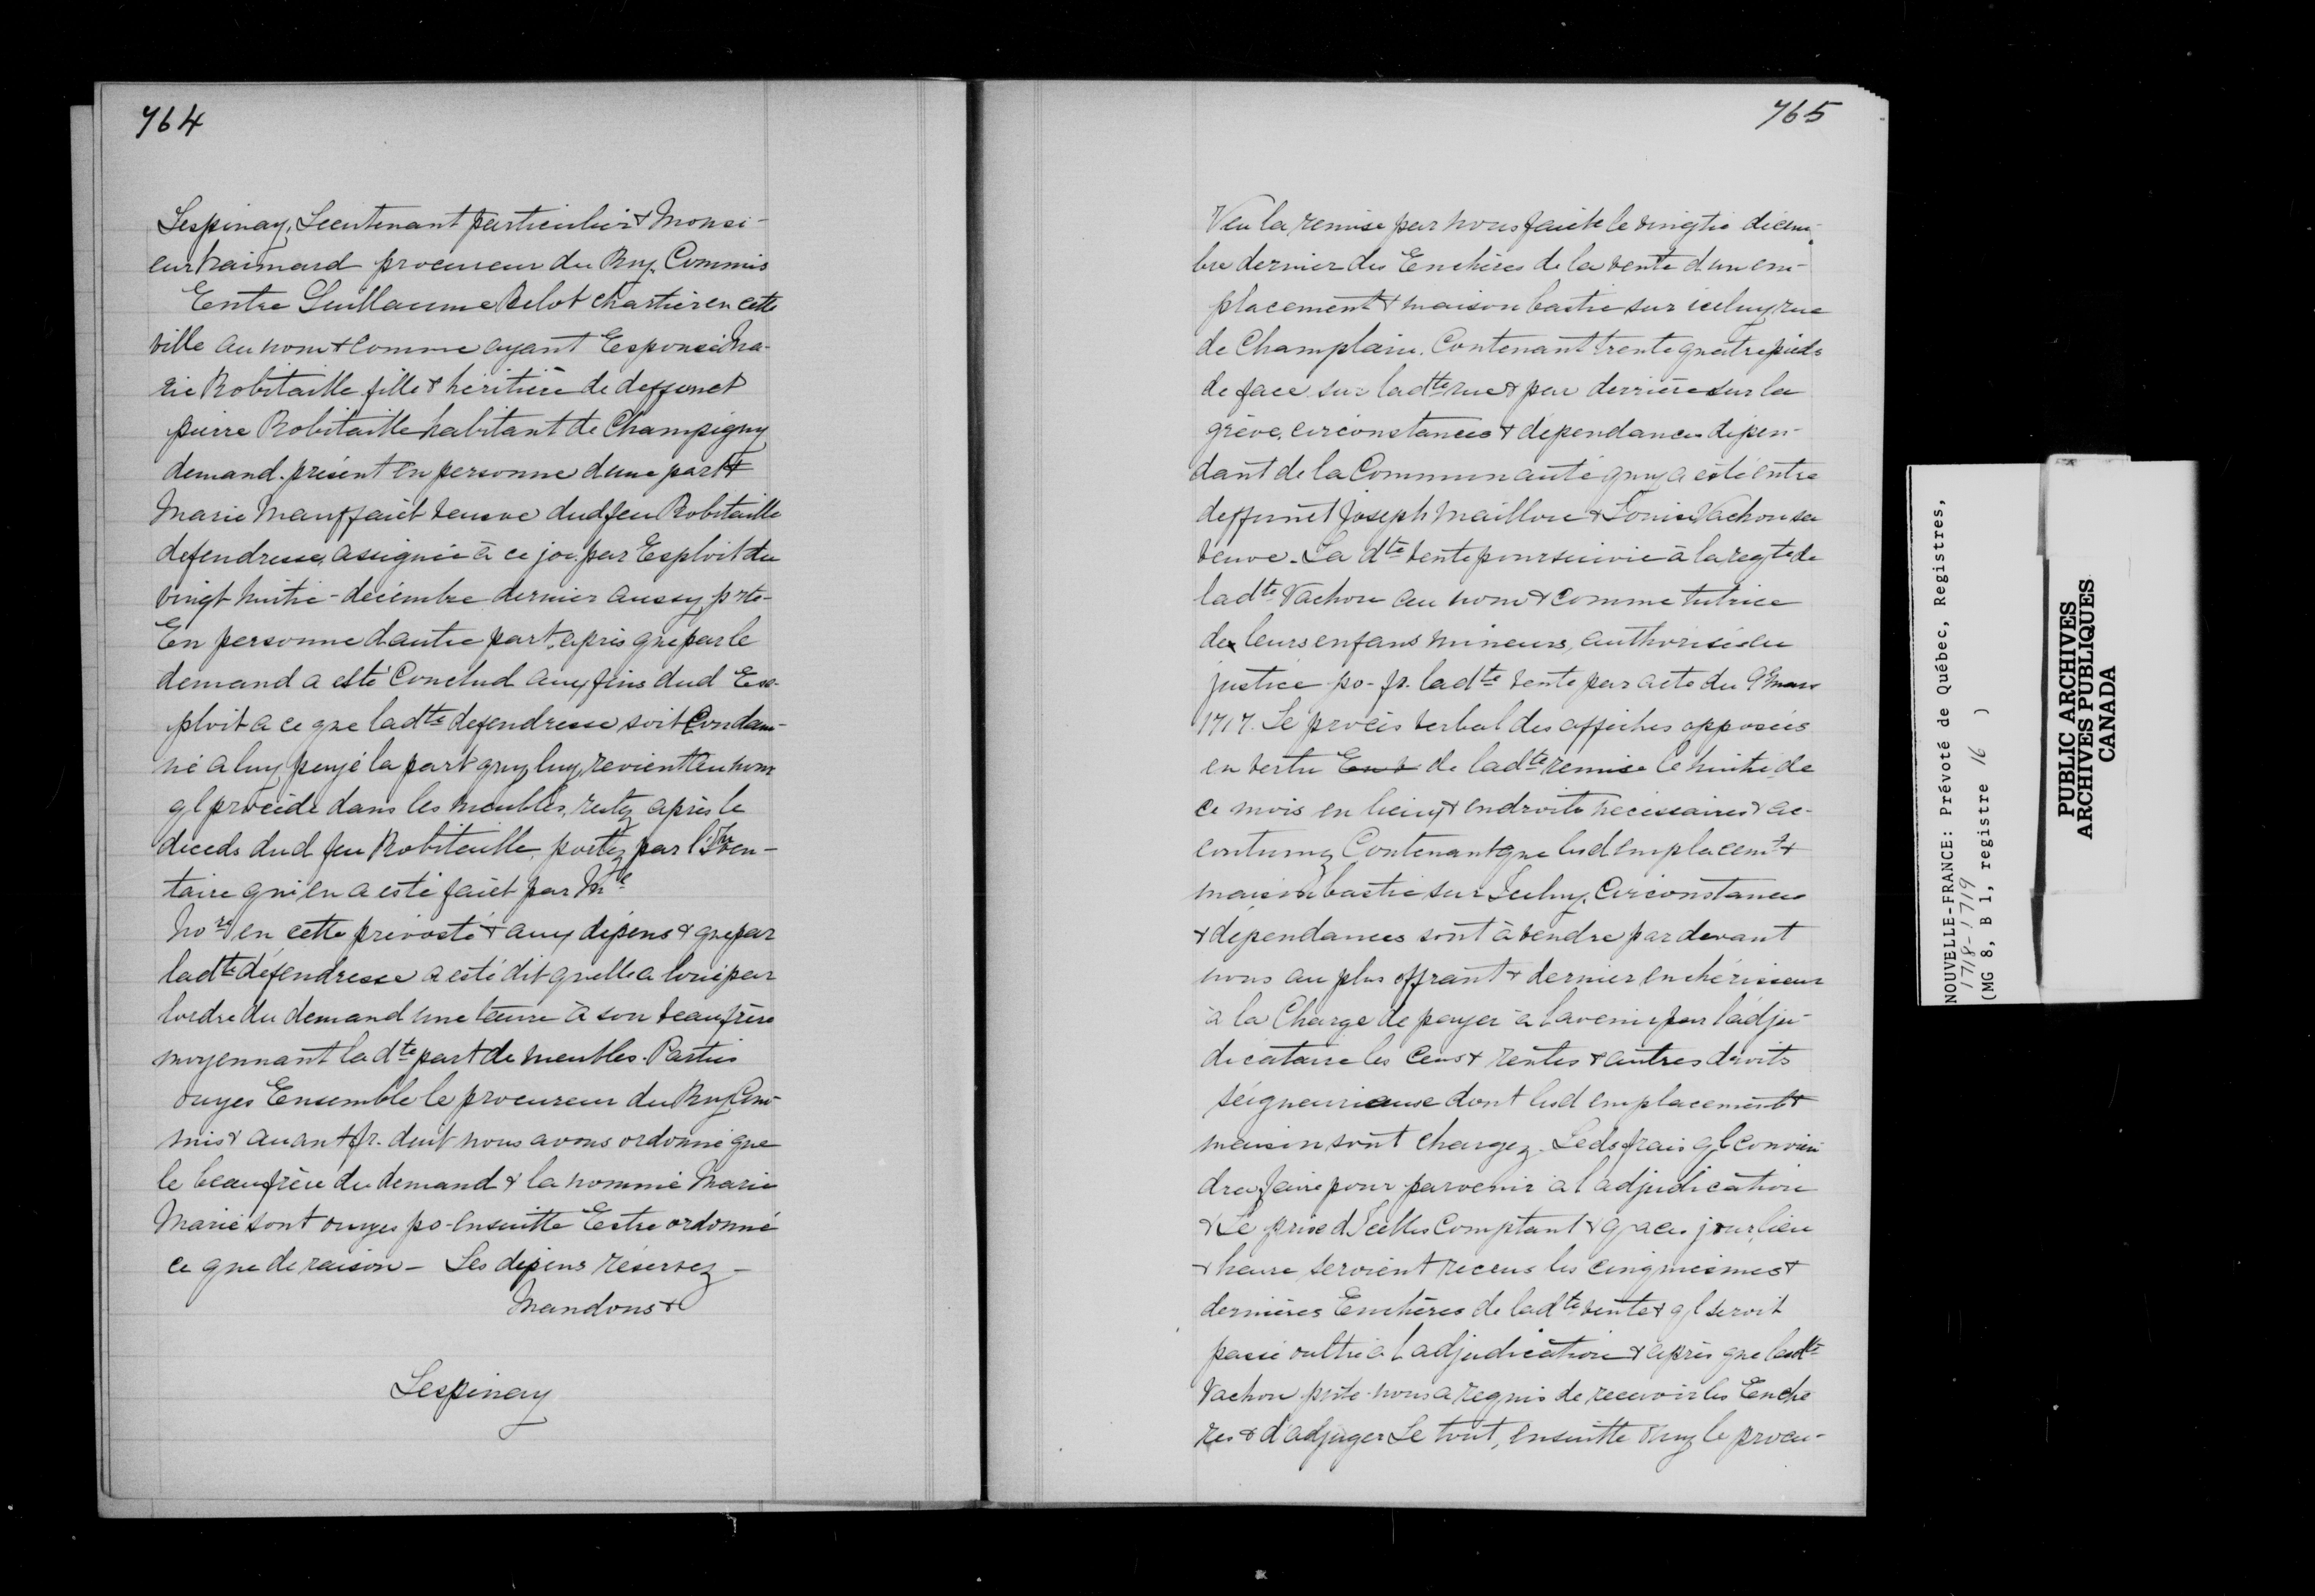 764
Lespinay, Lieutenant particulier & Monsi-
eur haimard procureur du Roy Commis
Entre Guillaume Belot chartier en cette
ville au nom & comme ayant Espousé Ma-
rie Robitaille fille & héritière de deffunct
pierre Robitaille habitant de Champigny
demand. présent en personne dune part &
Marie Mauffaict veuve dud feu Robitaille
defendresse, assignée à ce jor. par Esploit du
vingt huitie - décembre dernier aussy prte-
En personne dautre part, après que par le
demand a esté Conclud aux fins dud Ex-
ploit a ce que ladte defendresse soit Condam-
né a luy payé la part quy luy revient au nom
ql procède dans les meubles, restez après le
déceds dud feu Robitaille, portez par l'Inven-
taire qui en a esté faict par Me
Nore en cette prévosté & aux dépens & que par
ladte défendresse a esté dit quelle a loué par
lordre du demand une taure à son beaufrère
moyennant ladte part de meubles. Parties
ouyes Ensemble le procureur du Roy Com-
mis & avant fr. droit nous avons ordonné que
le beaufrère du demand & la nommé Marie
Marie sont ouyes po- ensuitte Estre ordonné
ce que de raison - Les dépens réservez -
Mandons &
Lespinay
765
Veu la remise par nous faicte le vingtie décem-
bre dernier des Enchères de la vente d'un em-
placement & maison bastie sur iceluy rue
de Champlain. Contenant trente quatre pieds
de face sur ladte rue & par derrière sur la
grève, circonstances & dépendances dépen-
dant de la Communauté quy a esté entre
deffunct Joseph Maillou & Louise Vachon sa
veuve. La dte vente poursuivie à la regte de
ladte Vachon au nom & comme tutrice
de leurs enfans mineurs, authorisée en
justice po- fr. ladte vente par acte du 9e mars
1717. Le procès verbal des affiches apposées
en vertu En v de ladte remise le huitie de
ce mois en lieux & endroits nécessaires & ac-
coutumez Contenant que led emplacemt &
maison bastie sur Iceluy, Circonstances
& dépendances sont à vendre par devant
nous au plus offrant & dernier enchérisseur
à la Charge de payer à lavenir par l'adju-
dicataire les Cens & rentes & autres droits
seigneuriaux dont led emplacement &
maison sont chargez. Leds frais ql convien
dra faire pour parvenir a l adjudication
& Le prix d Icelles Comptant & q a ces jour, lieu
& heure seroient receus les cinquiesmes &
dernières Enchères de ladte vente & ql seroit
passé oultre a l adjudication & après que ladte
Vachon prte- nous a requis de recevoir les Enchè
res & d'adjuger Le tout, ensuitte ouy le procu-
NOUVELLE-FRANCE: Prévoté de Québec, Registres,
1718-1719
(MG 8, B 1, registre 16 )
PUBLIC ARCHIVES
ARCHIVES PUBLIQUES
CANADA